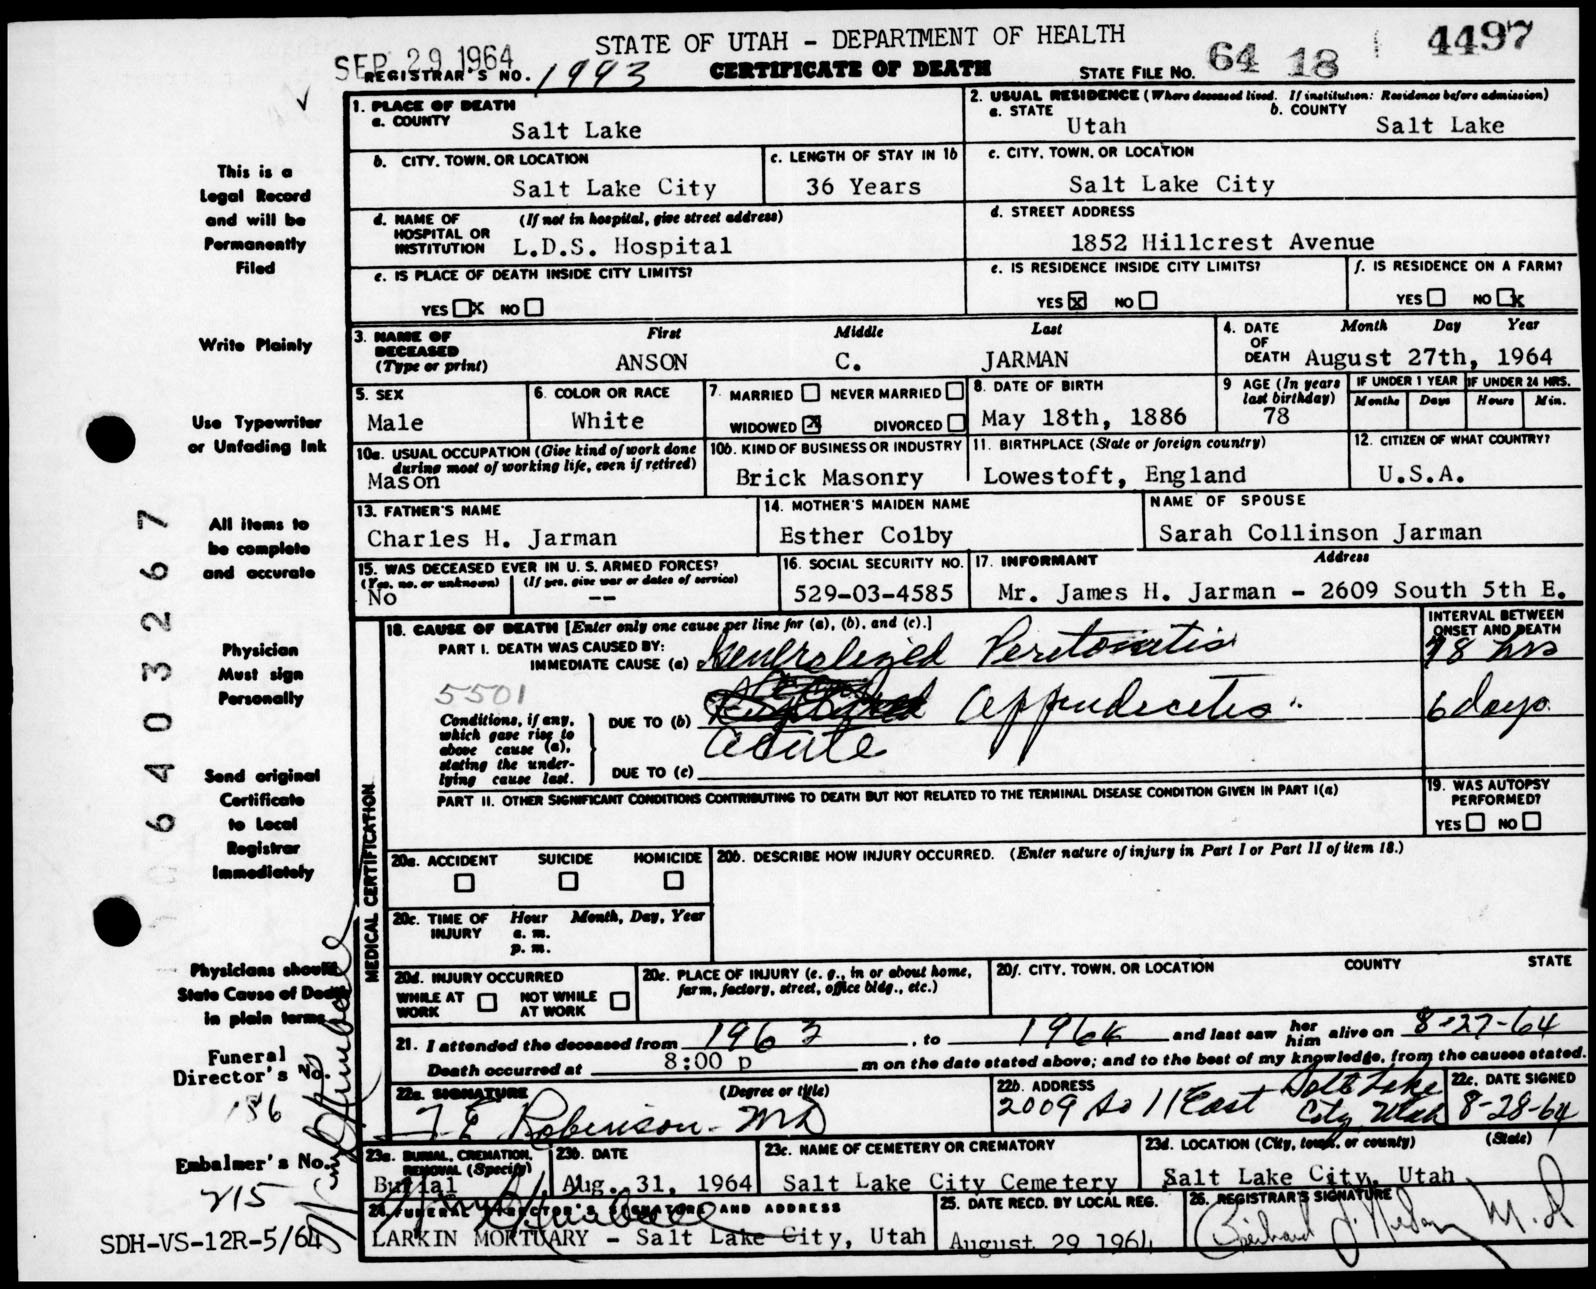 SEP 29 1964
STATE OF UTAH - DEPARTMENT OF HEALTH
REGISTRAR'S NO. 1993
CERTIFICATE OF DEATH
STATE FILE NO. 64 18 4497
This is a
Legal Record
and will be
Permanently
Filed
Write Plainly
Use Typewriter
or Unfading Ink
All items to
be complete
and accurate
Physician
Must sign
Personally
Send original
Certificate
to Local
Registrar
Immediately
Physicians should
State Cause of Death
in plain terms
Funeral
Director's No.
186
Embalmer's No.
215
SDH-VS-12R-5/64
0640 3267
1. PLACE OF DEATH
a. COUNTY
Salt Lake
2. USUAL RESIDENCE (Where deceased lived. If institution: Residence before admission)
a. STATE b. COUNTY
Utah Salt Lake
b. CITY, TOWN, OR LOCATION
Salt Lake City
c. LENGTH OF STAY IN 1b
36 Years
c. CITY, TOWN, OR LOCATION
Salt Lake City
d. NAME OF HOSPITAL OR INSTITUTION (If not in hospital, give street address)
L.D.S. Hospital
d. STREET ADDRESS
1852 Hillcrest Avenue
e. IS PLACE OF DEATH INSIDE CITY LIMITS?
YES X NO
e. IS RESIDENCE INSIDE CITY LIMITS?
YES X NO
f. IS RESIDENCE ON A FARM?
YES NO X
3. NAME OF DECEASED (Type or print)
First Middle Last
ANSON C. JARMAN
4. DATE OF DEATH Month Day Year
August 27th, 1964
5. SEX
Male
6. COLOR OR RACE
White
7. MARRIED NEVER MARRIED
WIDOWED X DIVORCED
8. DATE OF BIRTH
May 18th, 1886
9 AGE (In years last birthday)
78
IF UNDER 1 YEAR IF UNDER 24 HRS.
Months Days Hours Min.
10a. USUAL OCCUPATION (Give kind of work done during most of working life, even if retired)
Mason
10b. KIND OF BUSINESS OR INDUSTRY
Brick Masonry
11. BIRTHPLACE (State or foreign country)
Lowestoft, England
12. CITIZEN OF WHAT COUNTRY?
U.S.A.
13. FATHER'S NAME
Charles H. Jarman
14. MOTHER'S MAIDEN NAME
Esther Colby
NAME OF SPOUSE
Sarah Collinson Jarman
15. WAS DECEASED EVER IN U. S. ARMED FORCES?
(Yes, no. or unknown) (If yes, give war or dates of service)
No --
16. SOCIAL SECURITY NO.
529-03-4585
17. INFORMANT Address
Mr. James H. Jarman - 2609 South 5th E.
MEDICAL CERTIFICATION
18. CAUSE OF DEATH [Enter only one cause per line for (a), (b), and (c).]
INTERVAL BETWEEN ONSET AND DEATH
PART I. DEATH WAS CAUSED BY:
IMMEDIATE CAUSE (a) Generalized Peritonitis
hrs
5501
Conditions, if any, which gave rise to above cause (a), stating the underlying cause last.
DUE TO (b) appendicitis
6 days
acute
DUE TO (c)
PART II. OTHER SIGNIFICANT CONDITIONS CONTRIBUTING TO DEATH BUT NOT RELATED TO THE TERMINAL DISEASE CONDITION GIVEN IN PART I(a)
19. WAS AUTOPSY PERFORMED?
YES NO
20a. ACCIDENT SUICIDE HOMICIDE
20b. DESCRIBE HOW INJURY OCCURRED. (Enter nature of injury in Part I or Part II of item 18.)
20c. TIME OF INJURY Hour Month, Day, Year
a. m.
p. m.
20d. INJURY OCCURRED
WHILE AT WORK NOT WHILE AT WORK
20e. PLACE OF INJURY (e. g., in or about home, farm, factory, street, office bldg., etc.)
20f. CITY, TOWN, OR LOCATION COUNTY STATE
21. I attended the deceased from 1963, to 1964 and last saw her him alive on 8-27-64
Death occurred at 8:00 p m on the date stated above; and to the best of my knowledge, from the causes stated.
22a. SIGNATURE (Degree or title)
T E Robinson MD
22b. ADDRESS
2009 So 11 East Salt Lake City, Utah
22c. DATE SIGNED
8-28-64
23a. BURIAL, CREMATION, REMOVAL (Specify)
Burial
23b. DATE
Aug. 31, 1964
23c. NAME OF CEMETERY OR CREMATORY
Salt Lake City Cemetery
23d. LOCATION (City, town, or county) (State)
Salt Lake City, Utah
24. FUNERAL DIRECTOR'S SIGNATURE AND ADDRESS
LARKIN MORTUARY - Salt Lake City, Utah
25. DATE RECD. BY LOCAL REG.
August 29 1964
26. REGISTRAR'S SIGNATURE
M.D